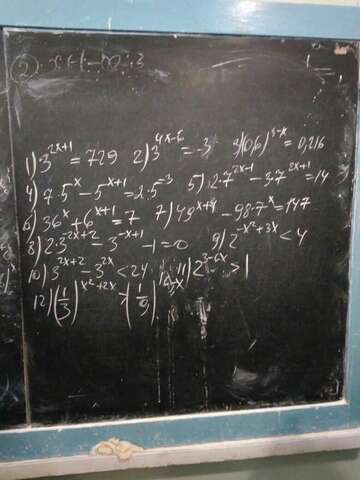 2) x
1) 3^{2x+1} = 729 2) 3^{4x-6} = -3 3) (0,6)^{3-x} = 0,216
4) 7·5^x - 5^{x+1} = 2·5^{-3} 5) 2·7^{2x-1} - 3·7^{2x+1} = 14
6) 36^x + 6^{x+1} = 7 7) 49^{x+1} - 98·7^x = 147
8) 2·3^{2x+2} - 3^{-x+1} - 1 = 0 9) 2^{-x^2+3x} < 4
10) 3^{2x+2} - 3^{2x} < 24 11) 2^{3-6x} > 1
12) (1/3)^{x^2+2x} > (1/9)